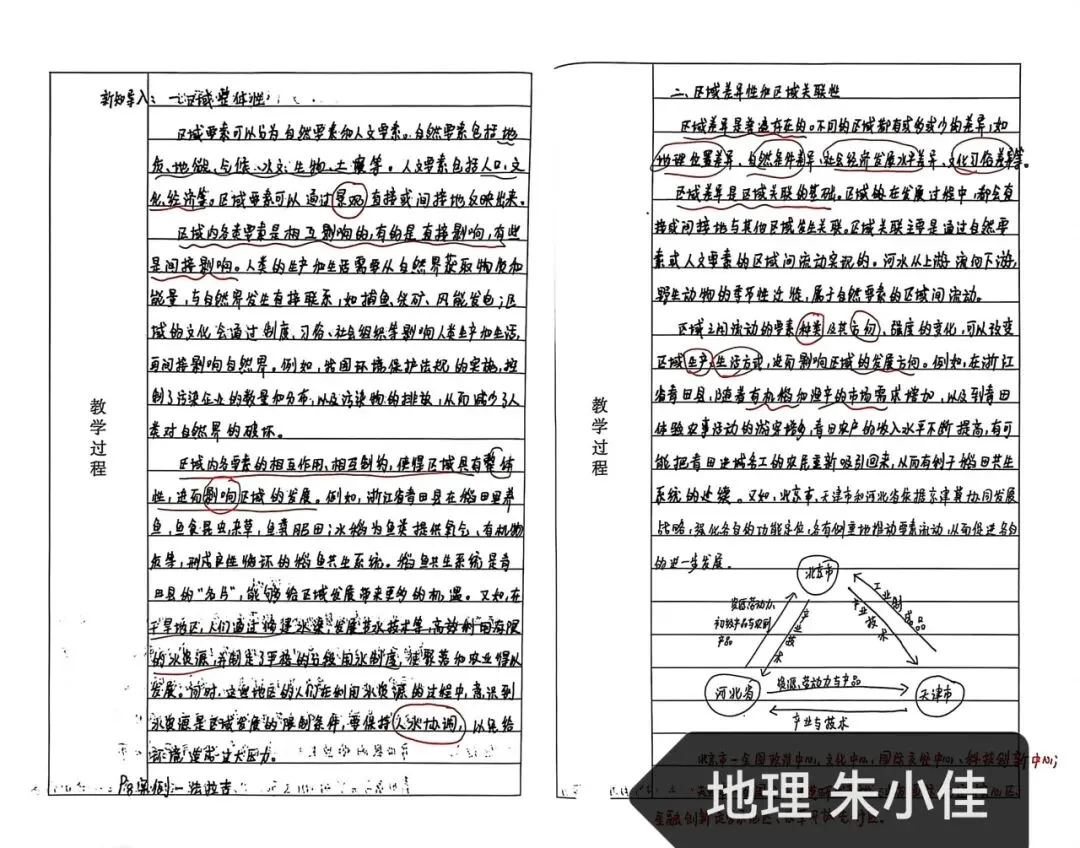 教学过程
新知导入：一、区域整体性
区域要素可以分为自然要素和人文要素。自然要素包括地
质、地貌、气候、水文、生物、土壤等。人文要素包括人口、文
化、经济等。区域要素可以通过景观直接或间接地反映出来。
区域内各类要素是相互影响的，有的是直接影响，有些
是间接影响。人类的生产和生活需要从自然界获取物质和
能量，与自然界发生直接联系，如捕鱼、采矿、风能发电；区
域的文化会通过制度、习俗、社会组织等影响人类生产和生活，
再间接影响自然界。例如，我国环境保护法规的实施，控
制了污染企业的数量和分布，以及污染物的排放，从而减少了人
类对自然界的破坏。
区域内各要素的相互作用、相互制约，使得区域具有整体
性，进而影响区域的发展。例如，浙江省青田县在稻田里养
鱼，鱼食昆虫、杂草，鱼粪肥田；水稻为鱼类提供氧气、有机物
质等，形成良性循环的稻鱼共生系统。稻鱼共生系统是青
田县的“名片”，能够给区域发展带来更多的机遇。又如，在
干旱地区，人们通过修建水渠，发展节水技术等，高效利用有限
的水资源，并制定了严格的分级用水制度，使聚落和农业得以
发展。同时，这些地区的人们在利用水资源的过程中，意识到
水资源是区域发展的限制条件，要保持人水协调，以免给
环境造成过大压力。
教学过程
二、区域差异性和区域关联性
区域差异是普遍存在的。不同的区域都有或多或少的差异，如
地理位置差异、自然条件差异、社会经济发展水平差异、文化习俗差异等。
区域差异是区域关联的基础。区域的在发展过程中，都会直
接或间接地与其他区域发生关联。区域关联主要是通过自然要
素或人文要素的区域间流动实现的。河水从上游流向下游，
野生动物的季节性迁徙，属于自然要素的区域间流动。
区域之间流动的要素种类及其方向、强度的变化，可以改变
区域生产、生活方式，进而影响区域的发展方向。例如，在浙江
省青田县，随着有机稻和渔产的市场需求增加，以及到青田
体验农事活动的游客增多，青田农户的收入水平不断提高，有可
能把青田进城务工的农民重新吸引回来，从而有利于稻田共生
系统的延续。又如，北京市、天津市和河北省依据京津冀协同发展
战略，强化各自的功能定位，各有侧重地推动要素流动，从而促进各自
的进一步发展。
北京市
资源、劳动力、
初级产品与农副
产品
产业技术
产业技术
工业制成品
河北省
资源、劳动力与产品
天津市
产业与技术
北京市—全国政治中心，文化中心，国际交往中心、科技创新中心；
地理 朱小佳